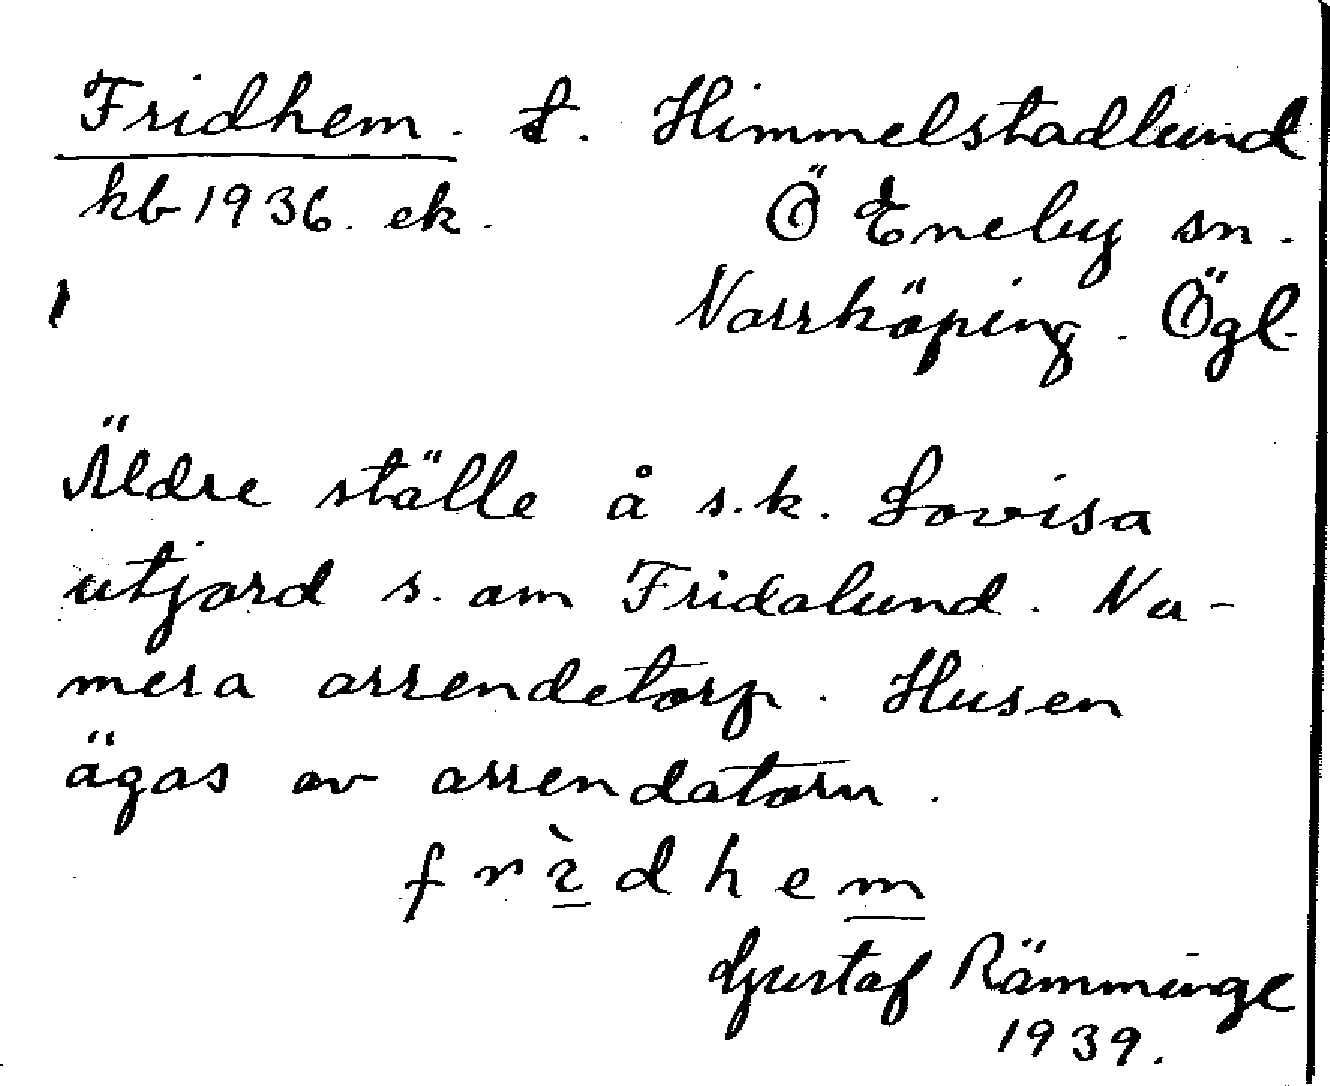 Fridhem. t. Himmelstadlund
kb 1936. ek. Ö Eneby sn.
Norrköping. Ögl.
Äldre ställe å s.k. Lovisa
utjord s. om Fridalund. Nu-
mera arrendetorp. Husen
ägas av arrendatorn.
f r ì d h e m
Gustaf Rämminge
1939.